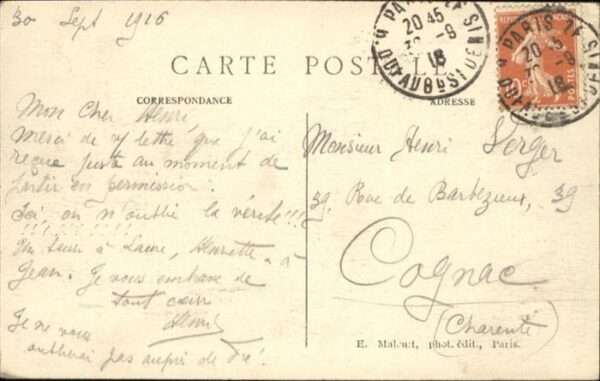 30 Sept 1916
PARIS
20 45
30 - 9
16
QUAI AUGUSTINS
CARTE POSTALE
CORRESPONDANCE
ADRESSE
Mon Cher Henri
Merci de lettre que j'ai
reçue juste au moment de
partir en permission.
on n'oublie la vérité !!!
à Laure, Henriette à
Jean. Je vous embrasse de
tout cœur
Henri
Je ne vous
oublierai pas auprès de
Monsieur Henri Verger
39, Rue de Barbezieux, 39
Cognac
(Charente)
E. Malcuit, phot. édit., Paris.